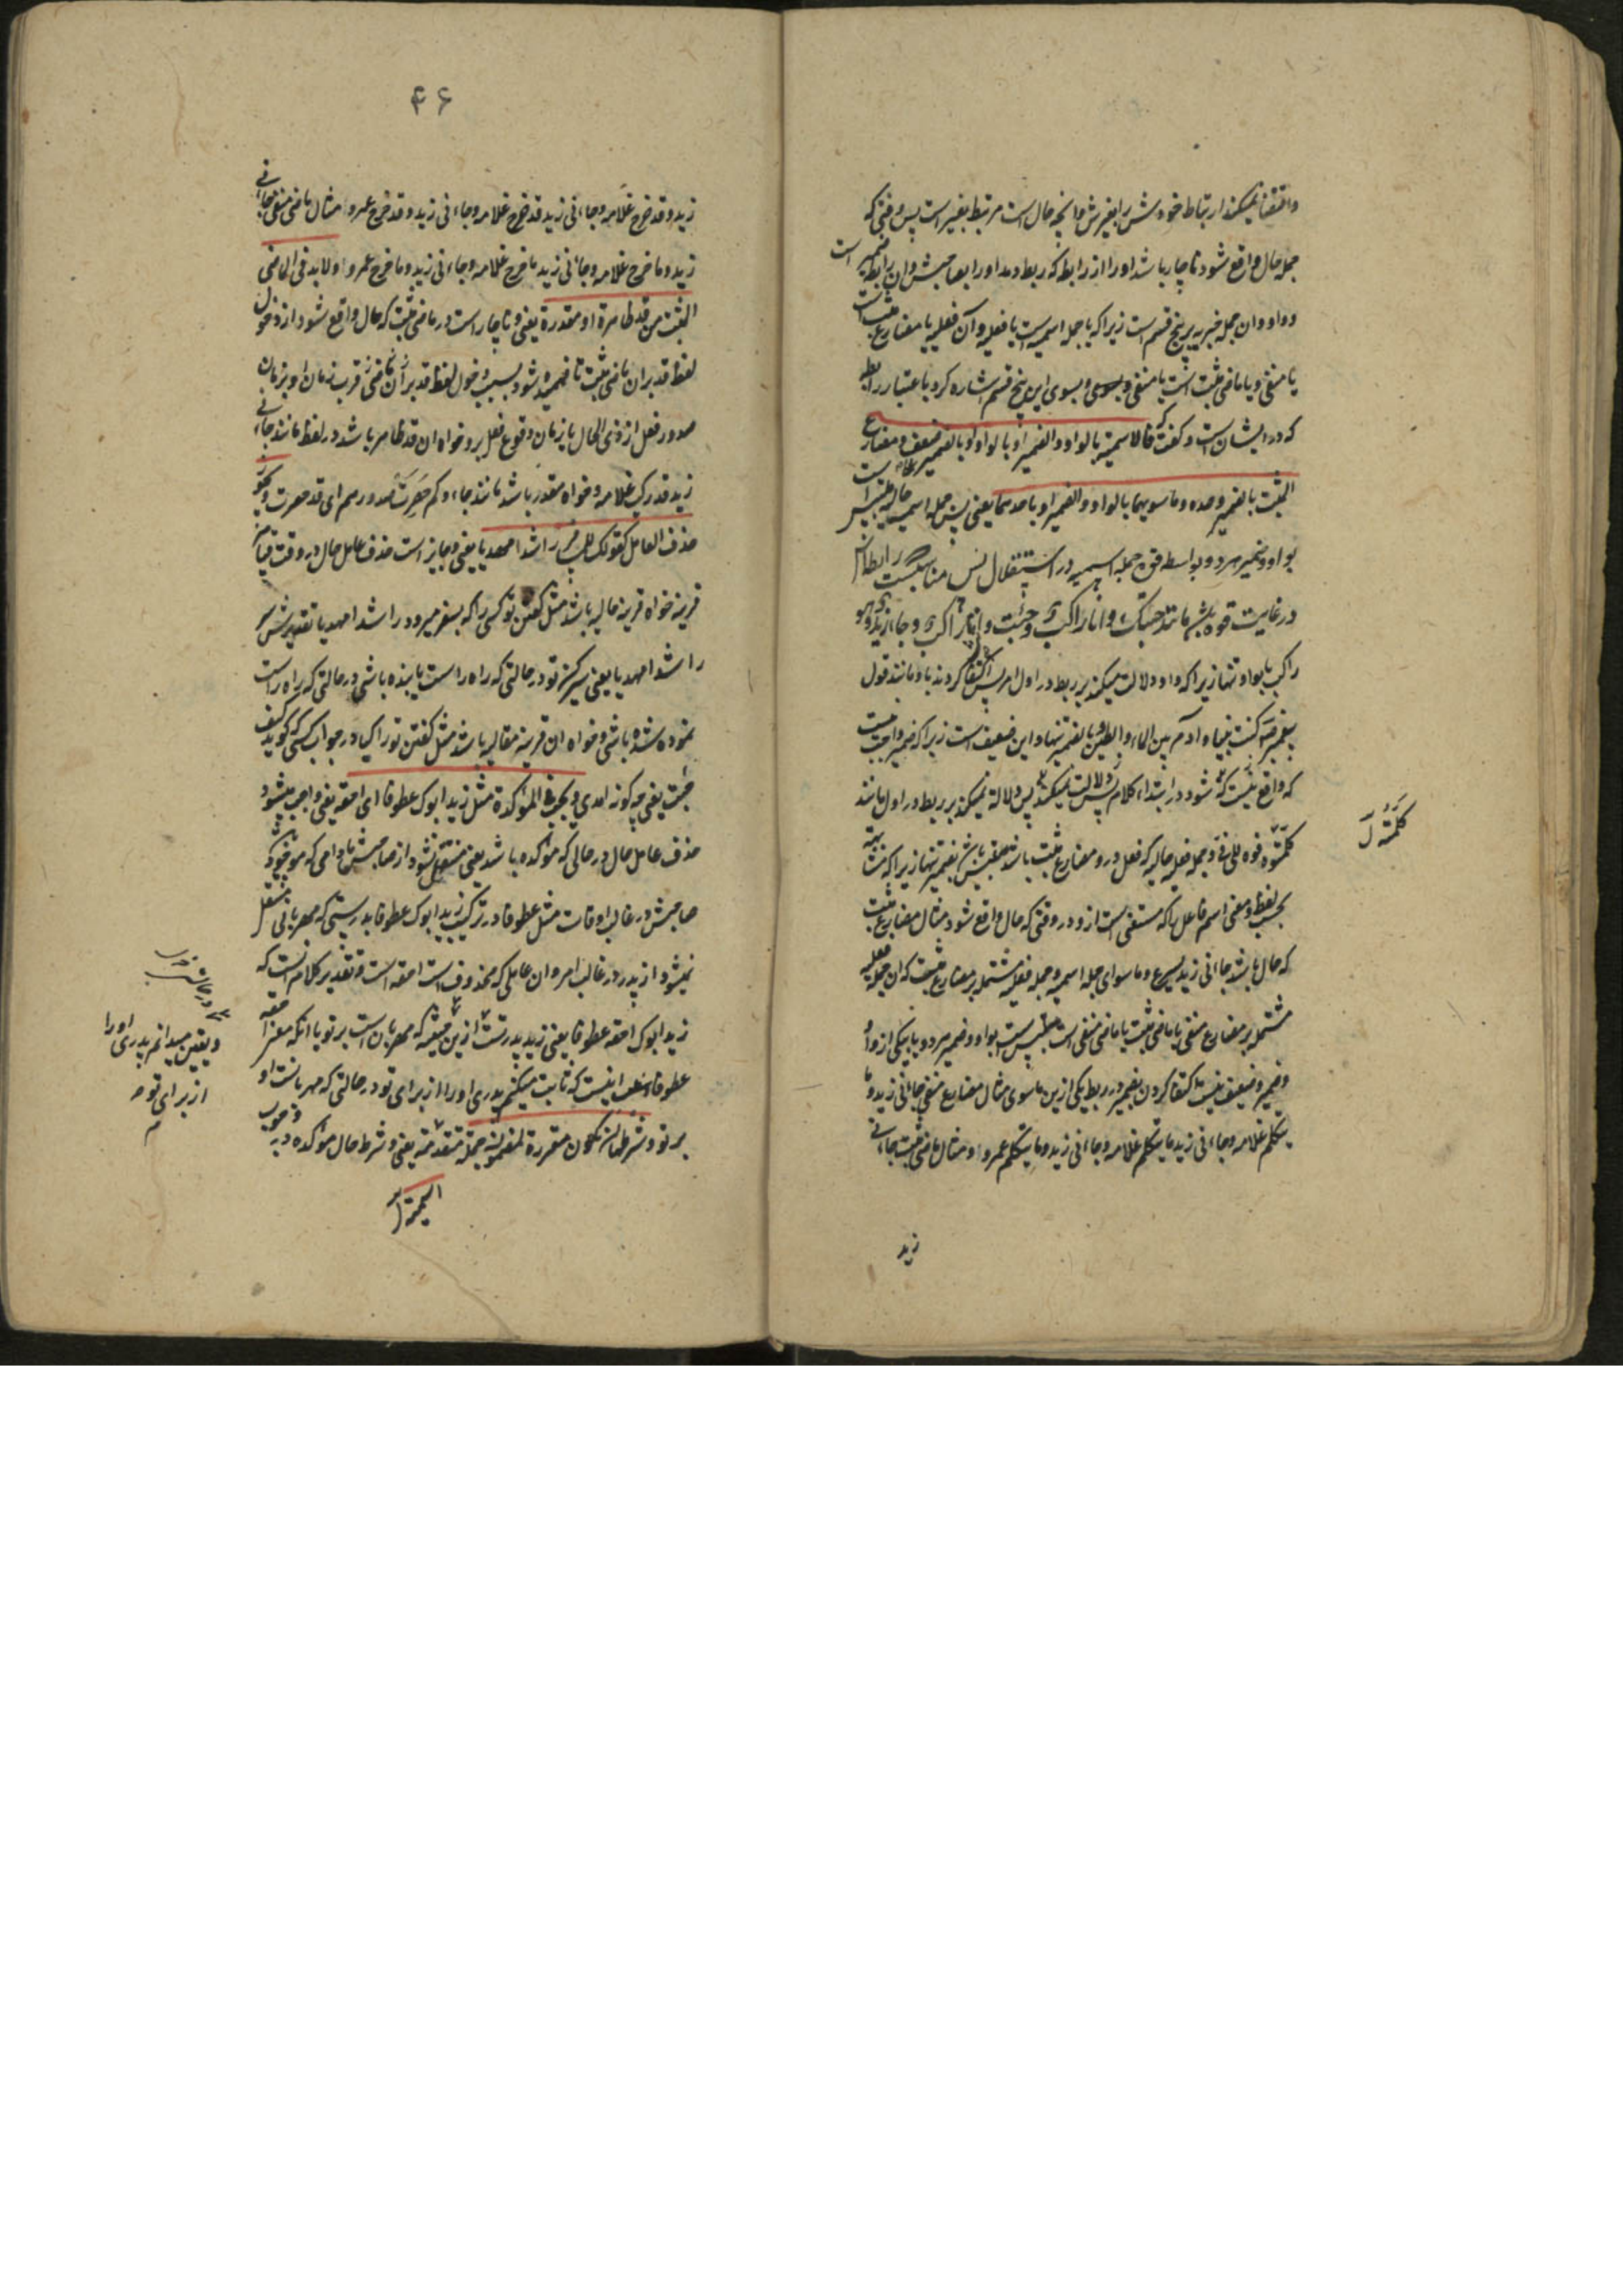 واقتضا نمیکند ارتباط خودش را بغیرش و آنچه حال است مرتبط بغیر است پس وقتی که
جمله حال واقع شود ناچار باشد او را از رابط که ربط دهد او را بصاحبش و آن رابط ضمیر است
و واو و ان جمله خبریه بر پنج قسم است زیرا که یا جمله اسمیه است یا فعلیه و آن فعلیه یا مضارع مثبت است
یا منفی و یا ماضی مثبت است یا منفی و بسوی این پنج قسم اشاره کرد باعتبار رابطه
که در ایشان است و گفت که فالاسمیة بالواو والضمیر او بالواو او بالضمیر علی ضعف و مضارع
المثبت بالضمیر وحده و ماسویهما بالواو والضمیر او باحدهما یعنی پس جمله اسمیه حالیه
بواو و ضمیر هر دو بواسطه قوه جمله اسمیه در استقلال پس مناسب است رابطه
در غایت قوه باشد مانند جئتک و انا راکب و جئت و انا راکب و جاء زید و هو
راکب یا بواو تنها زیرا که واو دلالت میکند بر ربط در اول امر پس اکتفا کردند باو مانند قول
پیغمبر کنت نبیاً و آدم بین الماء والطین یا بضمیر تنها و این ضعیف است زیرا که ضمیر واجب نیست
که واقع شود در ابتداء کلام پس دلالت نمیکند بر ربط در اول مانند
کلمته فوه الی فیّ و جمله فعلیه حالیه که فعل در و مضارع مثبت باشد بضمیر تنها زیرا که
بحسب لفظ و معنی اسم فاعل را که مستغنی است از و در وقتی که حال واقع شود مثال مضارع مثبت
که حال باشد جاءنی زید یسرع و ماسوای جمله اسمیه و جمله فعلیه مشتمل بر مضارع مثبت که ان جمله فعلیه
مشتمل بر مضارع منفی یا ماضی مثبت یا ماضی منفی است بواو و ضمیر هر دو یا بیکی از واو
و ضمیر و ضعیف نیست اکتفا کردن بضمیر در ربط یکی ازین ماسوی مثال مضارع منفی جاءنی زید و ما
یتکلم غلامه و جاءنی زید ما یتکلم غلامه و جاءنی زید و ما یتکلم عمرو و مثال ماضی مثبت جاءنی
زید
کلمته
۴۶
زید و قد خرج غلامه و جاءنی زید قد خرج غلامه و جاءنی زید و قد خرج عمرو مثال ماضی منفی جاءنی
زید و ما خرج غلامه و جاءنی زید ما خرج غلامه و جاءنی زید و ما خرج عمرو و لابد فی الماضی
المثبت من قد ظاهرة او مقدرة یعنی و ناچار است در ماضی مثبت که حال واقع شود از دخول
لفظ قد بران ماضی مثبت تا فهمیده شود بسبب دخول لفظ قد بر آن ماضی قرب زمان او بزمان
صدور فعل از ذی الحال یا زمان وقوع فعل برو خواه ان قد ظاهر باشد در لفظ مانند جاءنی
زید قد رکب غلامه و خواه مقدر باشد مانند جاءوکم حصرت صدورهم ای قد حصرت و یجوز
حذف العامل کقولک للمسافر راشداً مهدیاً یعنی و جایز است حذف عامل حال در وقت قیام
قرینه خواه قرینه حالیه باشد مثل گفتن تو کسی را که بسفر میرود راشداً مهدیاً تقدیرش سر
راشداً مهدیاً یعنی سیر کن تو در حالتی که راه راست یابنده باشی در حالتی که راه راست
نموده شده باشی و خواه ان قرینه مقالیه باشد مثل گفتن تو راکباً در جواب کسی که گوید کیف
جئت یعنی چه گونه امدی و یجب فی المؤکدة مثل زید ابوک عطوفاً ای احقه یعنی واجب میشود
حذف عامل حال در حالی که مؤکده باشد یعنی منتقل نشود از صاحبش مادامی که موجود
صاحبش در غالب اوقات مثل عطوفاً در ترکیب زید ابوک عطوفاً بدرستی که مهربانی منتقل
نمیشود از پدر در غالب امر و ان عاملی که محذوف است احقه است و تقدیر کلام انست که
زید ابوک احقه عطوفاً یعنی زید پدر تست که مهربان است بر تو با انکه معنی احقه
عطوفاً اینست که ثابت میکنم پدری او را از برای تو در حالتی که مهربانست او
بر تو و شرطها ان تکون مقررة لمضمون جملة متقدمة یعنی و شرط حال مؤکده وجوب
اسمیة
و یقین میدانم پدری او را
از برای تو